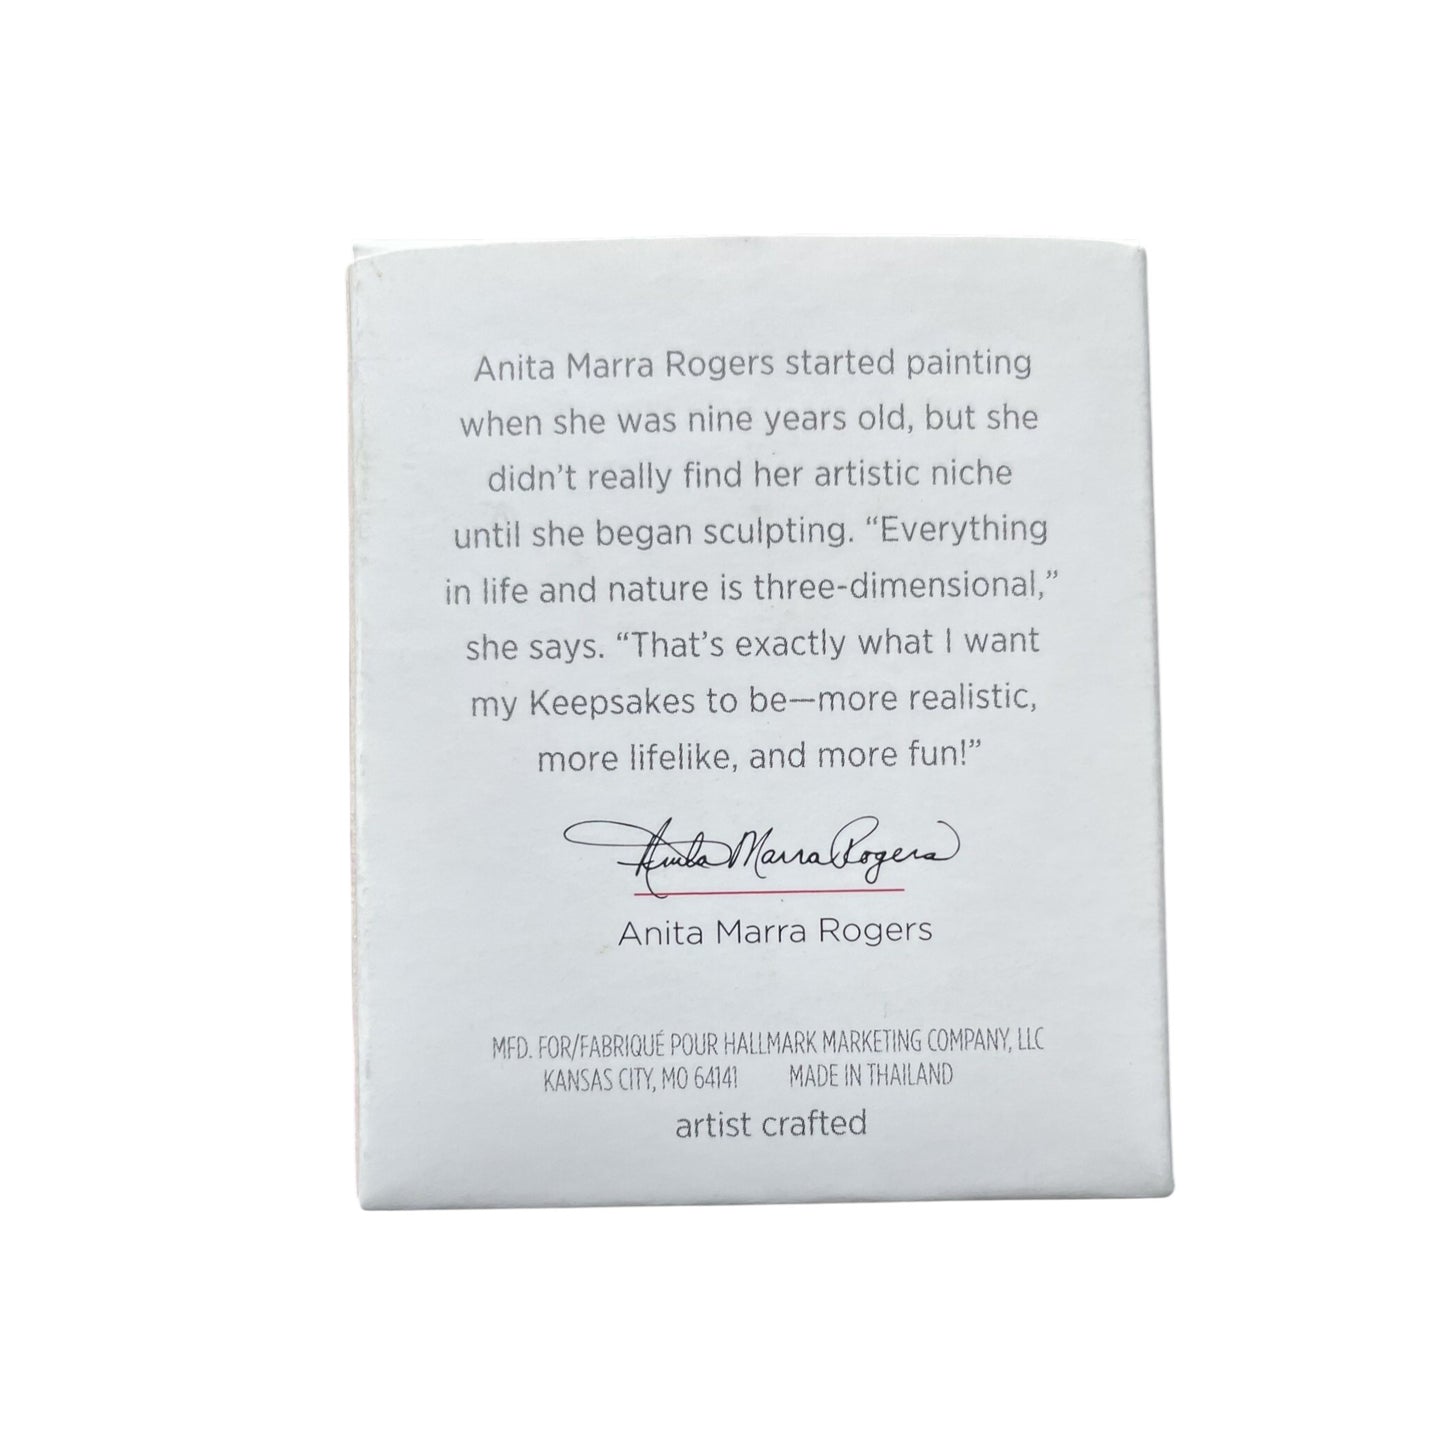 Anita Marra Rogers started painting
when she was nine years old, but she
didn't really find her artistic niche
until she began sculpting. “Everything
in life and nature is three-dimensional,”
she says. “That's exactly what I want
my Keepsakes to be—more realistic,
more lifelike, and more fun!”
Anita Marra Rogers
Anita Marra Rogers
MFD. FOR/FABRIQUÉ POUR HALLMARK MARKETING COMPANY, LLC
KANSAS CITY, MO 64141 MADE IN THAILAND
artist crafted